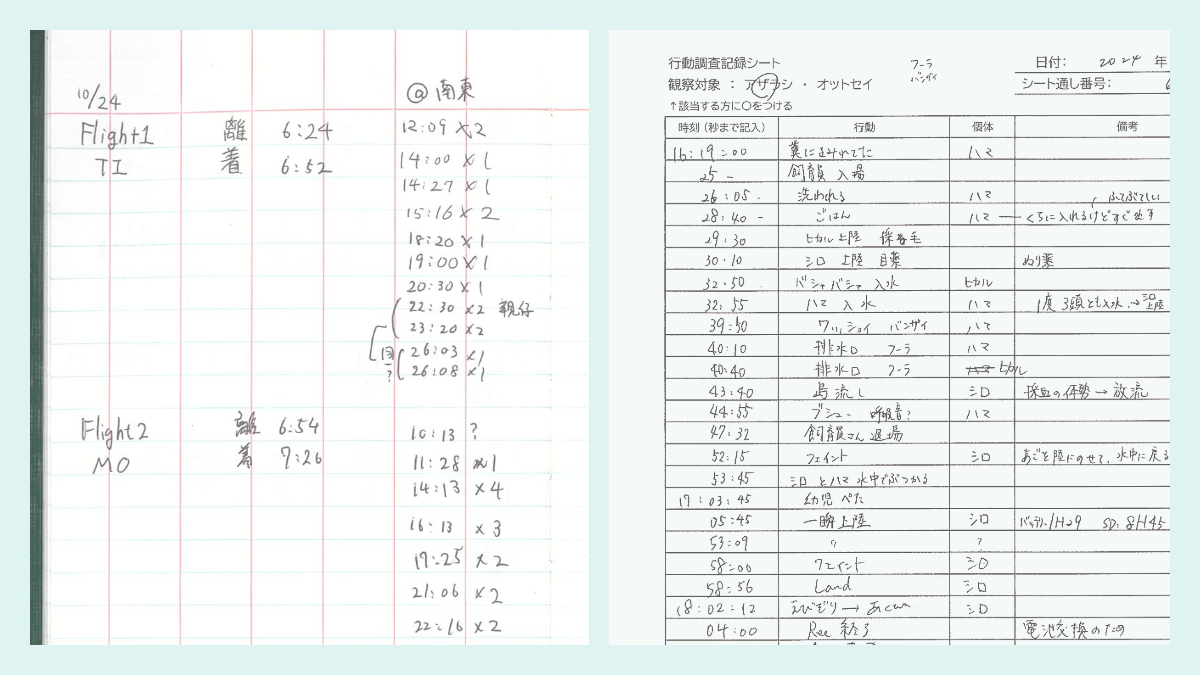 10/24
@南東
Flight1 離 6:24
TI 着 6:52
12:09 × 2
14:00 × 1
14:27 × 1
15:16 × 2
18:20 × 1
19:00 × 1
20:30 × 1
22:30 ×2 親仔
23:20 ×2
同? 26:03 ×1
26:08 ×1
Flight2 離 6:54
MO 着 7:26
10:13 ?
11:28 ×1
14:13 ×4
16:13 ×3
19:25 ×2
21:06 ×2
22:16 ×2
行動調査記録シート フーラ バンザイ 日付: 2024 年
観察対象 : アザラシ ・ オットセイ シート通し番号:
↑該当する方に○をつける
時刻 (秒まで記入) 行動 個体 備考
16:19:00 糞にまみれてた ハマ
25 - 飼育員 入場
26:05 洗われる ハマ ふてぶてしい
28:40 - ごはん ハマ くちに入れるけどすぐ出す
29:30 ヒカル上陸 採毛
30:10 シロ 上陸 目薬 ぬり薬
32:50 バシャバシャ 入水 ヒカル
32:55 ハマ 入水 ハマ 1度 3頭とも入水 → シロ上陸
39:50 ワッショイ バンザイ ハマ
40:10 排水口 フーラ ハマ
40:40 排水口 フーラ ヒカル
43:40 島流し シロ 採血の体勢 → 放流
44:55 ブシュー 呼吸音? ハマ
47:32 飼育員さん退場
52:15 フェイント シロ あごを陸にのせて、水中に戻る
53:45 シロとハマ 水中でぶつかる
17:03:45 幼児 ぺた
05:45 一瞬上陸 シロ バッテリー1H29 SD: 8H45
53:09 〃 ?
58:00 フェイント シロ
58:56 Land シロ
18:02:12 えびぞり → あくび シロ
04:00 Rec 終了 電池交換のため